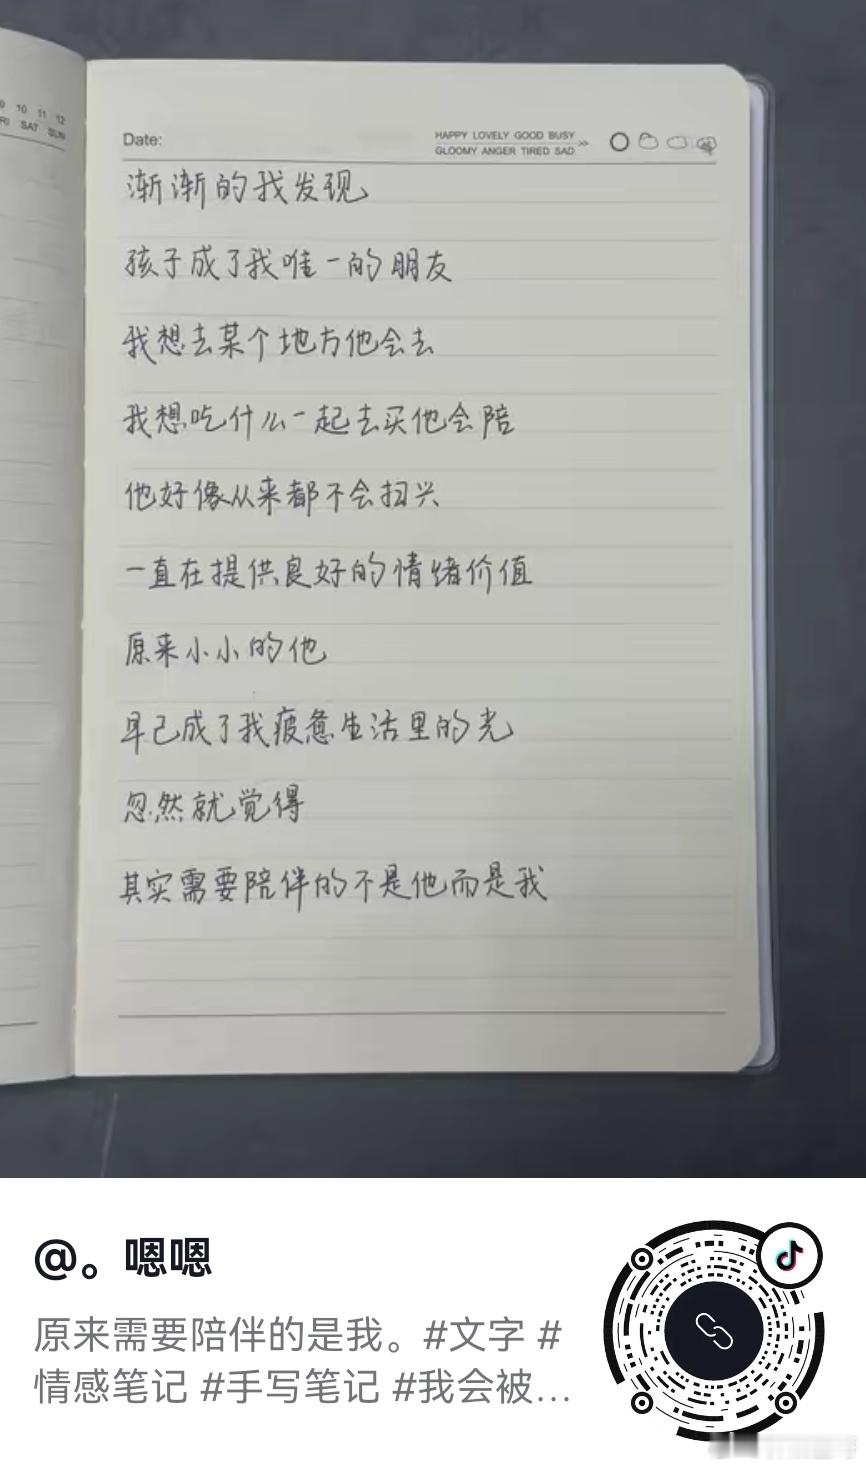 9 10 11 12
RI SAT SUN
Date:
HAPPY LOVELY GOOD BUSY
GLOOMY ANGER TIRED SAD
渐渐的我发现
孩子成了我唯一的朋友
我想去某个地方他会去
我想吃什么一起去买他会陪
他好像从来都不会扫兴
一直在提供良好的情绪价值
原来小小的他
早已成了我疲惫生活里的光
忽然就觉得
其实需要陪伴的不是他而是我
@。嗯嗯
原来需要陪伴的是我。#文字 #
情感笔记 #手写笔记 #我会被...